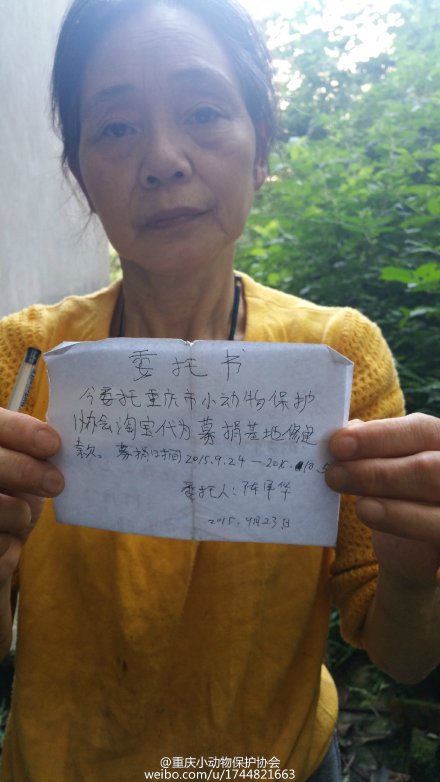 委托书
今委托重庆市小动物保护
协会淘宝代为募捐基地修建
款。募捐时间2015.9.24—2015.10.5
委托人:陈军华
2015.9月23日
@重庆小动物保护协会
weibo.com/u/1744821663